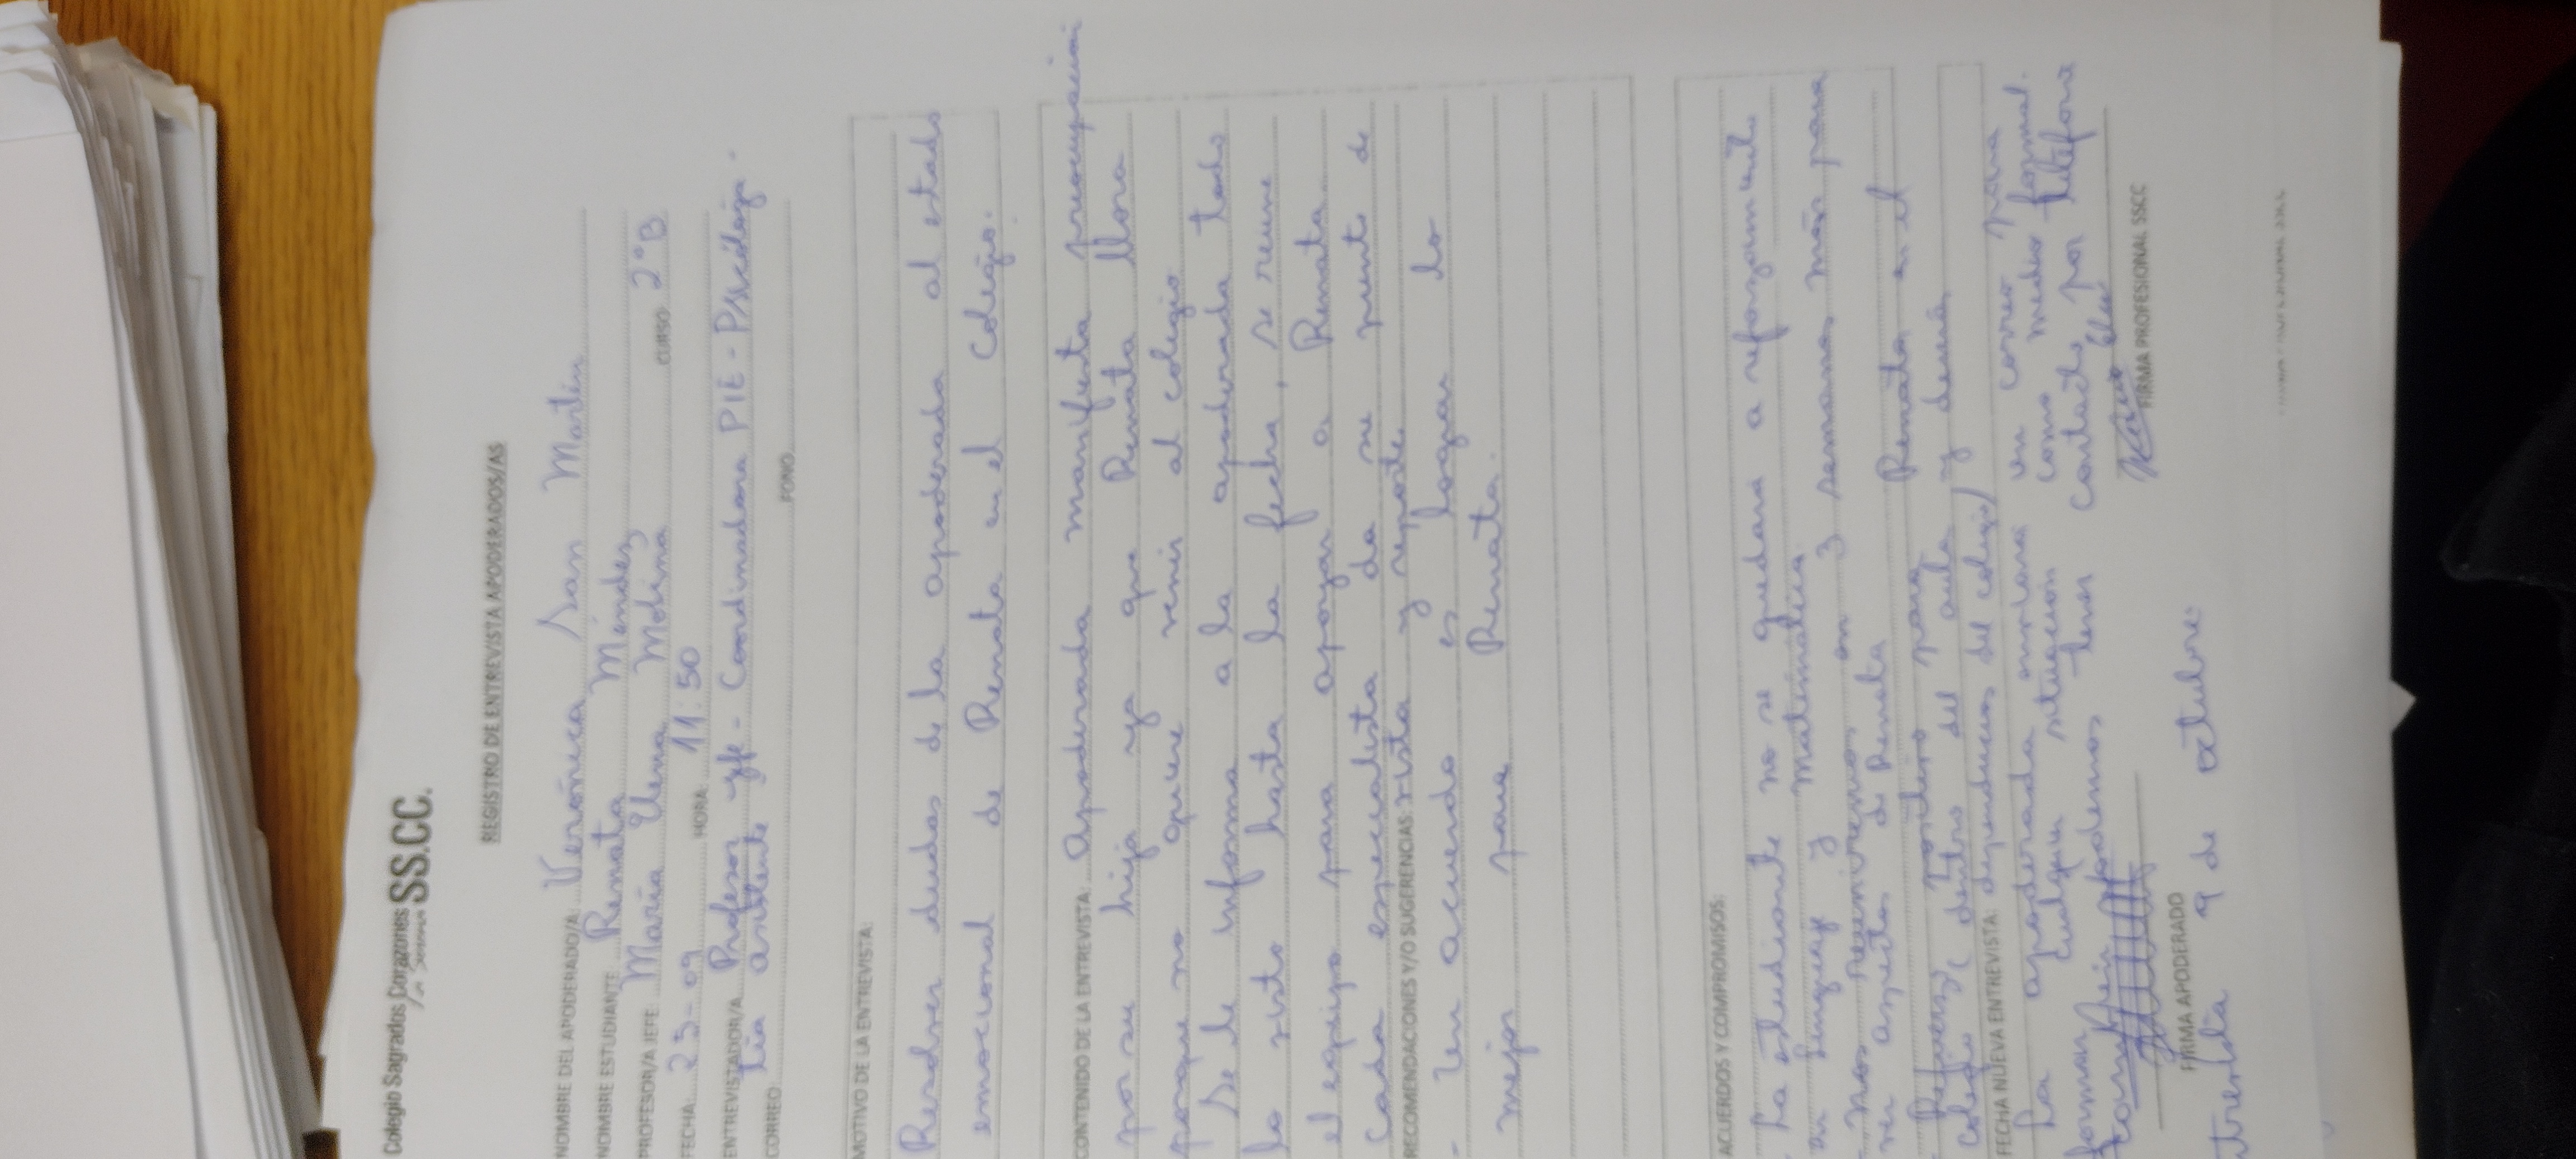 Colegio Sagrados Corazones SS.CC.
REGISTRO DE ENTREVISTA APODERADOS/AS
NOMBRE DEL APODERADO/A: Verónica San Martín
NOMBRE ESTUDIANTE: Renata Méndez
PROFESOR/A JEFE: María Elena Molina CURSO 2°B
FECHA: 25-09 HORA: 11:50
ENTREVISTADOR/A Profesor jfe - Coordinadora PIE - Psicóloga -
tía asistente
CORREO FONO
MOTIVO DE LA ENTREVISTA:
Resolver dudas de la apoderada al estado
emocional de Renata en el Colegio.
CONTENIDO DE LA ENTREVISTA: Apoderada manifiesta preocupación
por su hija ya que Renata llora
porque no quiere venir al colegio
Se le informa a la apoderada todo
lo visto hasta la fecha, se reune
el equipo para apoyar a Renata.
Cada especialista da su punto de
RECOMENDACIONES Y/O SUGERENCIAS: vista y reporte.
- Un acuerdo es lograr lo
mejor para Renata.
ACUERDOS Y COMPROMISOS:
- La estudiante no se quedara a reforzamiento
en lenguaje y matemática.
- Nos reuniremos en 3 semanas más para
ver aspectos de Renata
- Refuerzo positivo para Renata en el
colegio (dentro del aula y demás
FECHA NUEVA ENTREVISTA: dependencias del colegio)
La apoderada enviara un correo para
cualquier situación como medio formal.
también podemos tener contacto por teléfono
FIRMA APODERADO
FIRMA PROFESIONAL SSCC
9 de octubre